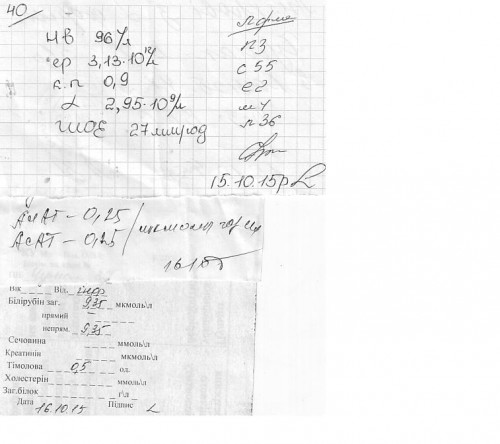 40
Нв 96 г/л
ер 3,13·10¹²/л
к.п 0,9
L 2,95·10⁹/л
ШОЕ 27 мм/год
л. форм
п3
с 55
е2
м 4
л 36
15.10.15р
АлАТ – 0,25
АсАТ – 0,25
16/10
Вік Від.
Білірубін заг. 9,35 мкмоль\л
прямий –
непрям. 9,35
Сечовина ммоль\л
Креатинін мкмоль\л
Тімолова 0,5 од.
Холестерін ммоль\л
Заг.білок г\л
Дата 16.10.15 Підпис